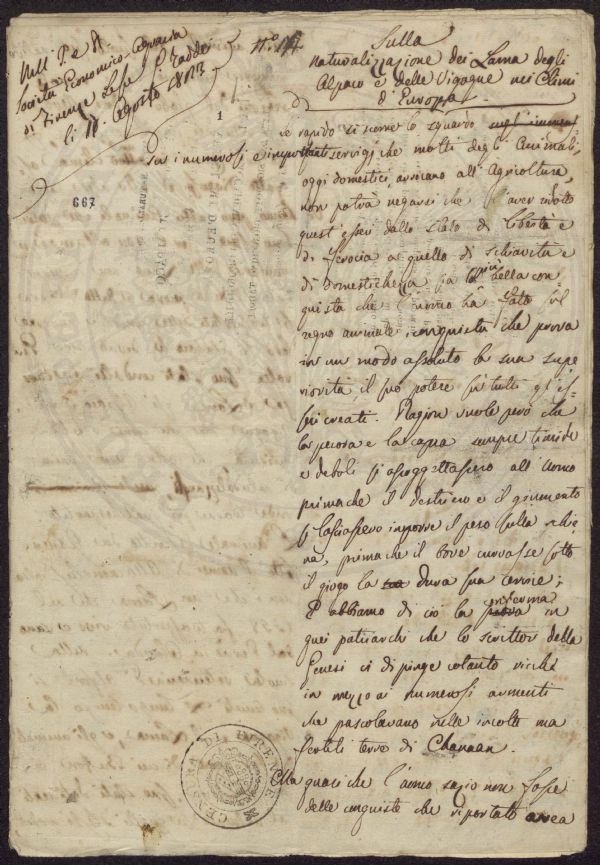 Nell' I. e R.
Società Economico Agraria
di Firenze Lesse Taddei
li 10. Agosto 1823
N.o
Sulla
naturalizzazione dei Lama degli
Alpaco e delle Vigogne nei Climi
d'Europa.
1
667
se rapido si scorre lo sguardo
su i numerosi e importanti servigj che molti degli Animali,
oggi domestici, arrecano all'Agricoltura,
non potrà negarsi che l'aver ridotto
quest'esseri dallo stato di libertà e
di ferocia a quello di schiavitù e
di domestichezza sia la più bella con-
quista che l'uomo ha fatto sul
regno animale, conquista che prova
in un modo assoluto la sua supe
riorità il suo potere su tutti gl'es-
seri creati. Ragion vuole però che
la pecora e la capra sempre timide
e deboli si assoggettassero all'uomo
prima che il destriero e il giumento
si lasciassero imporre il peso sulla schie-
na, prima che il bove curvasse sotto
il giogo la sua dura sua cervice;
E abbiamo di ciò la prova conferma in
quei patriarchi che lo scrittore della
Genesi ci dipinge cotanto ricchi
in mezzo ai numerosi armenti
che pascolavano nelle incolte ma
fertili terre di Chanaan.
Ma quasi che l'uomo sazio non fosse
delle conquiste che riportato avea
CENSURA DI FIRENZE